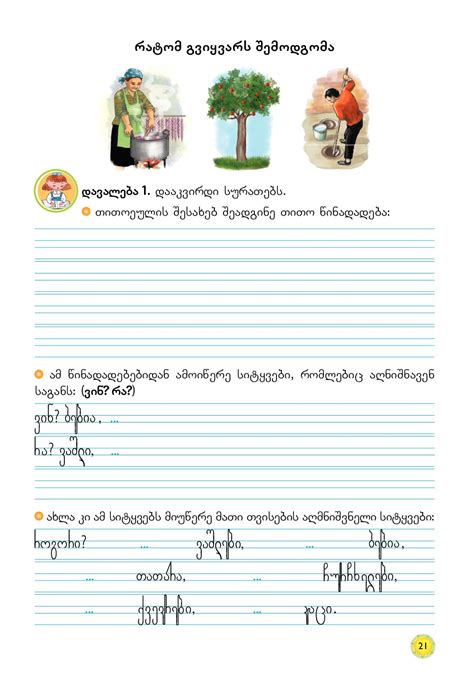 რატომ გვიყვარს შემოდგომა
დავალება 1. დააკვირდი სურათებს.
თითოეულის შესახებ შეადგინე თითო წინადადება:
ამ წინადადებებიდან ამოიწერე სიტყვები, რომლებიც აღნიშნავენ
საგანს: (ვინ? რა?)
ვინ? ბებია, ...
რა? ვაშლი, ...
ახლა კი ამ სიტყვებს მიუწერე მათი თვისების აღმნიშვნელი სიტყვები:
როგორი? ... ვაშლები, ... ბებია,
... თათარა, ... ჩურჩხელები,
... ქვევრები, ... კაცი.
21